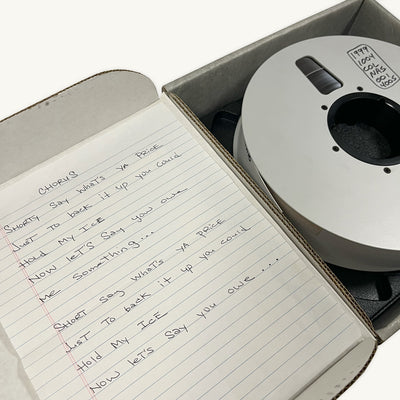 CHORUS
SHORTY SAY WHAT'S YA PRICE
JUST TO back it up you could
Hold My ICE
NOW LET'S SAY you owe
Me Something...
SHORT SAY WHAT'S YA PRICE
JUST TO back it up you could
Hold My ICE
NOW LET'S SAY you owe ....
1999
1004
COL
NAS
001
4005